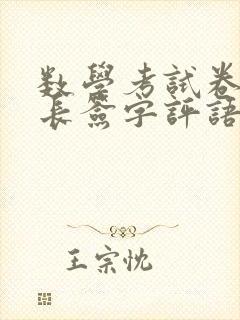 数學考試卷
長簽字評語
王宗忱